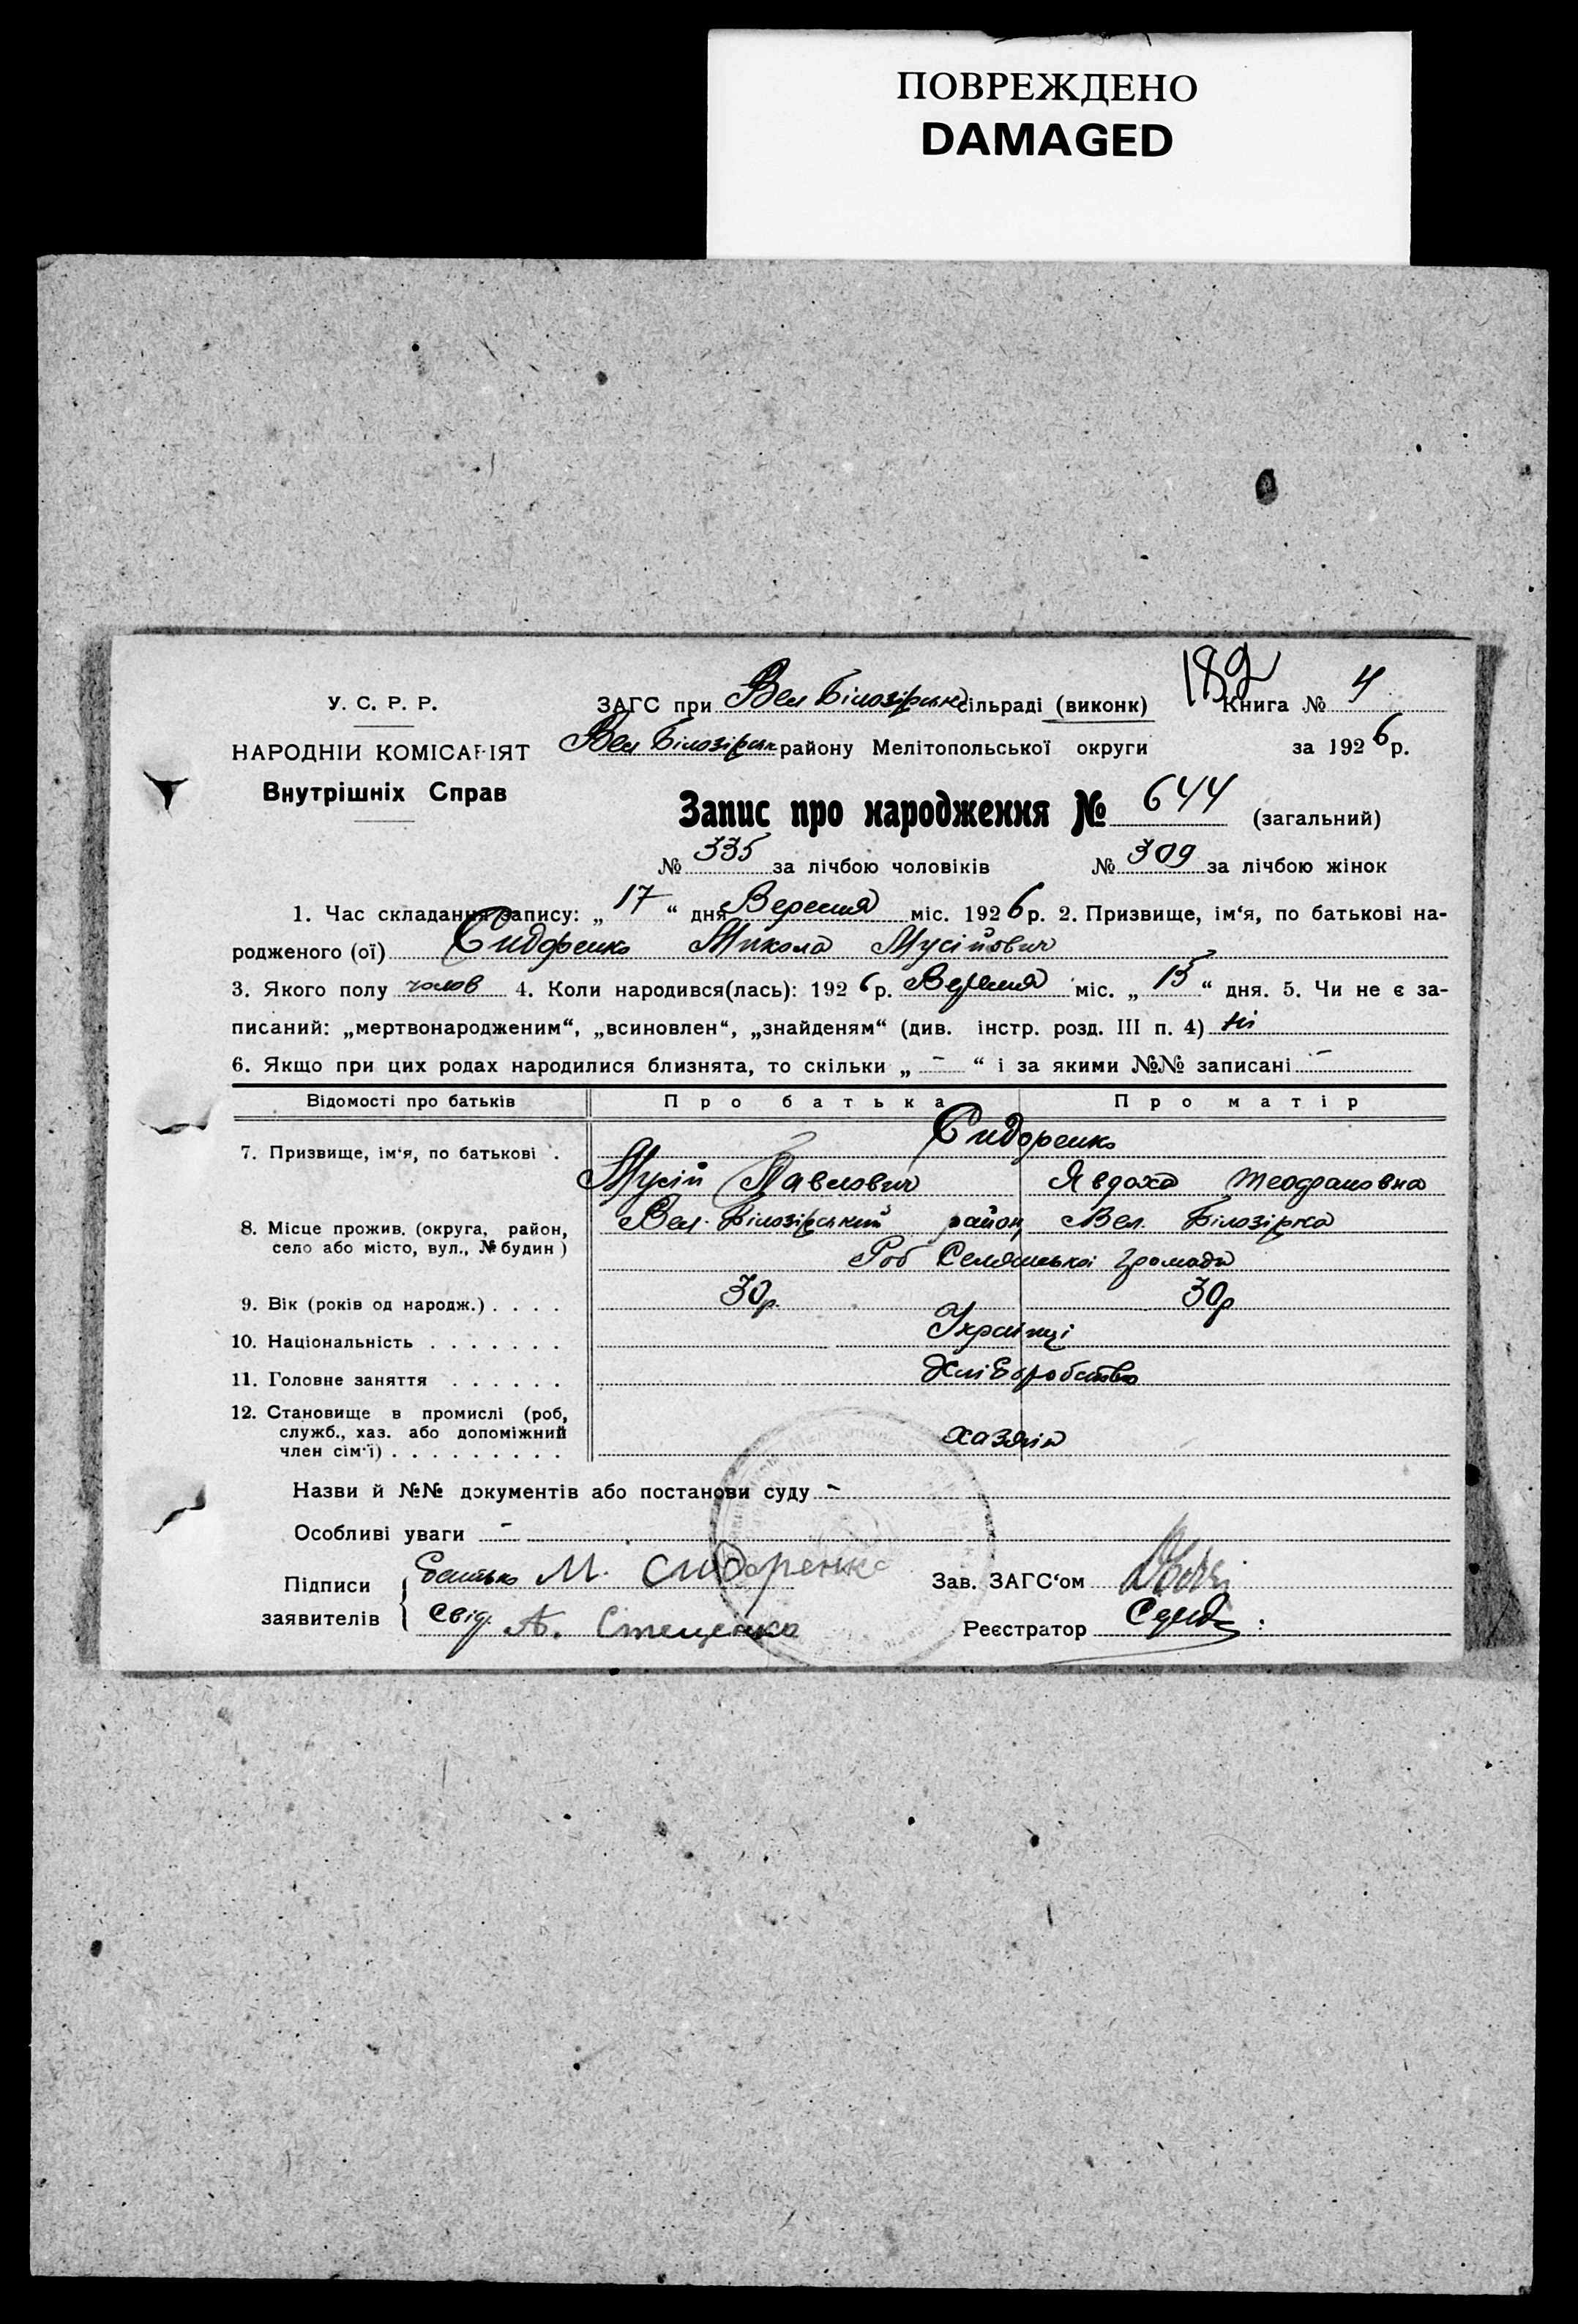 ПОВРЕЖДЕНО
DAMAGED
182
У. С. Р. Р.
ЗАГС при Вел Білозірській сільраді (виконк) Книга № 4
НАРОДНІЙ КОМІСАРІЯТ
Вел Білозірськ району Мелітопольської округи за 1926 р.
Внутрішніх Справ
Запис про народження № 644 (загальний)
№ 335 за лічбою чоловіків № 309 за лічбою жінок
1. Час складання запису: „ 17 “ дня Вересня міс. 1926 р. 2. Призвище, ім‘я, по батькові на-
родженого (ої) Сидоренко Микола Мусійович
3. Якого полу чолов 4. Коли народився(лась): 1926 р. Вересня міс. „ 15 “ дня. 5. Чи не є за-
писаний: „мертвонародженим“, „всиновлен“, „знайденям“ (див. інстр. розд. III п. 4) ні
6. Якщо при цих родах народилися близнята, то скільки „ – “ і за якими №№ записані –
Відомості про батьків Про батька Про матір
Сидоренко
7. Призвище, ім‘я, по батькові .
Мусій Павлович Явдоха Теофановна
8. Місце прожив. (округа, район, село або місто, вул., № будин )
Вел. Білозірський район, Вел. Білозірка
Роб Селянської громади
9. Вік (років од народж.) . . . . 30р. 30р
10. Національність . . . . . . . Українці
11. Головне заняття . . . . . . Хліборобство
12. Становище в промислі (роб,
служб., хаз. або допоміжний
член сім‘ї) . . . . . . . . . хазяін
Назви й №№ документів або постанови суду –
Особливі уваги –
Підписи заявителів { батько М. Сидоренко
свід. А. Стеценко
Зав. ЗАГС‘ом
Реєстратор